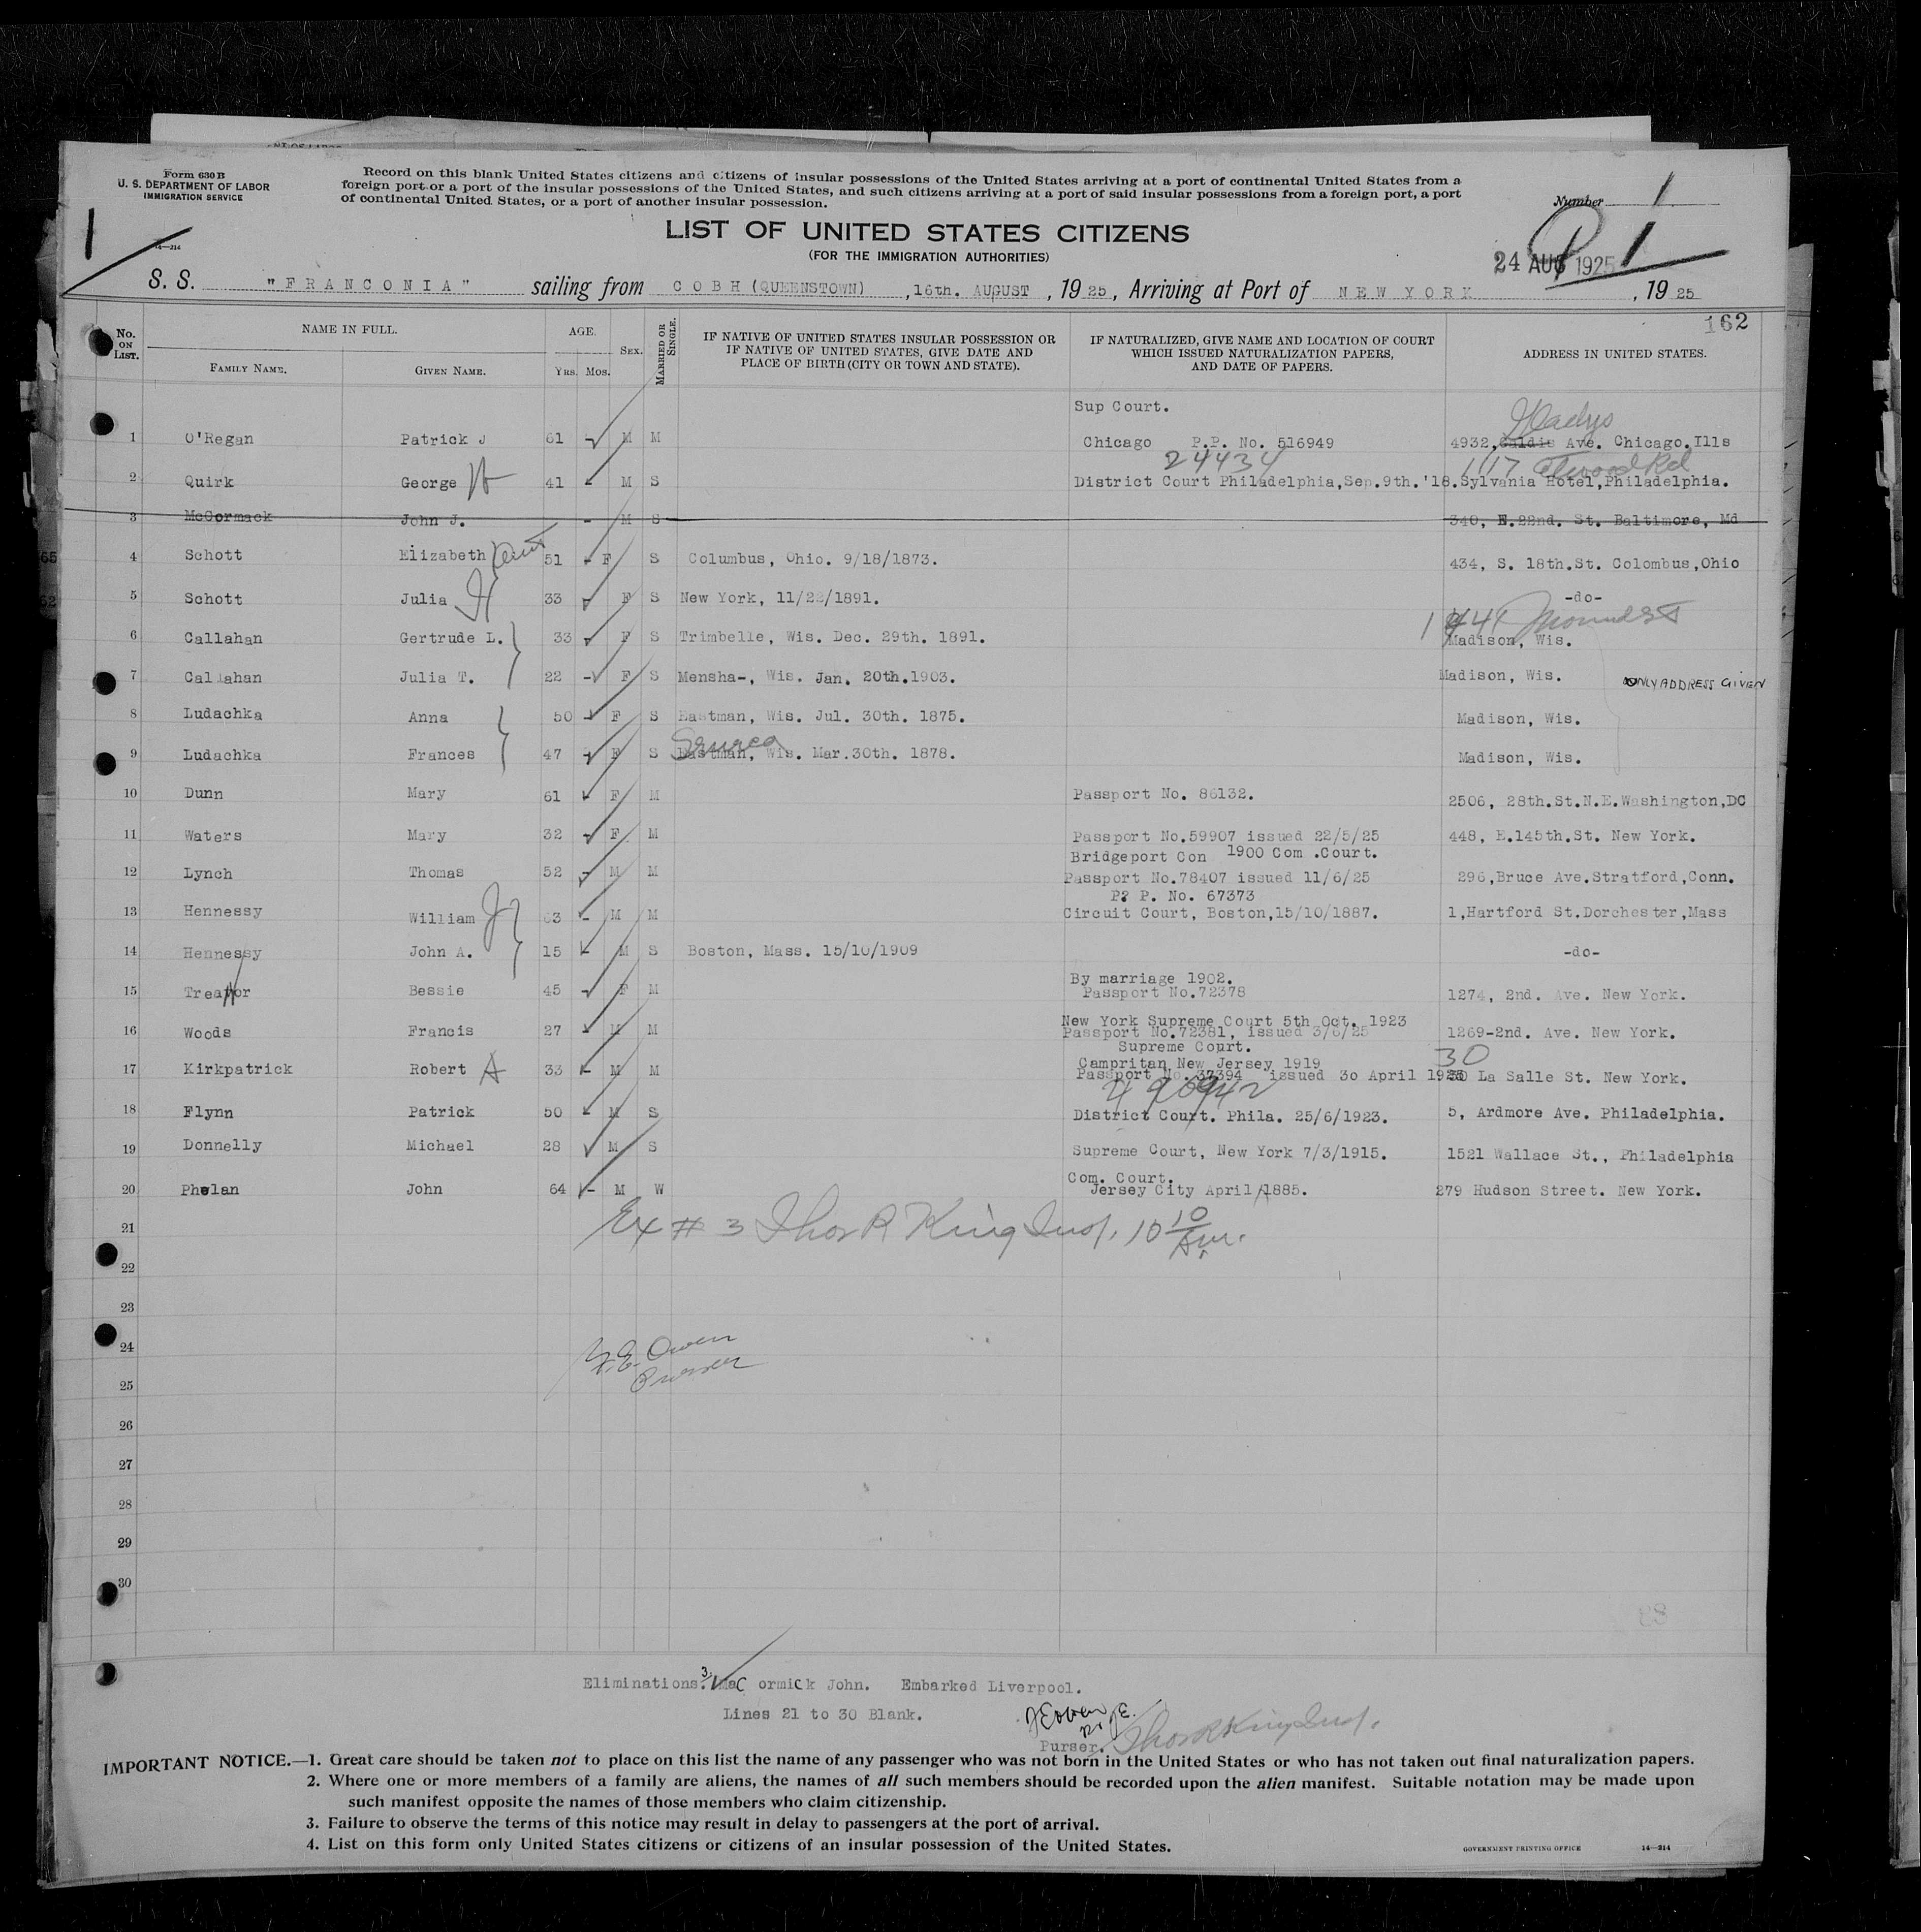 Form 630 B
U. S. DEPARTMENT OF LABOR
IMMIGRATION SERVICE
Record on this blank United States citizens and citizens of insular possessions of the United States arriving at a port of continental United States from a
foreign port or a port of the insular possessions of the United States, and such citizens arriving at a port of said insular possessions from a foreign port, a port
of continental United States, or a port of another insular possession.
Number 1
1
14—214
LIST OF UNITED STATES CITIZENS
(FOR THE IMMIGRATION AUTHORITIES)
24 AUG 1925
1
S. S. "FRANCONIA" sailing from COBH (QUEENSTOWN), 16th. AUGUST, 1925, Arriving at Port of NEW YORK, 1925
162
No. ON LIST. NAME IN FULL. AGE. SEX. MARRIED OR SINGLE. IF NATIVE OF UNITED STATES INSULAR POSSESSION OR IF NATIVE OF UNITED STATES, GIVE DATE AND PLACE OF BIRTH (CITY OR TOWN AND STATE). IF NATURALIZED, GIVE NAME AND LOCATION OF COURT WHICH ISSUED NATURALIZATION PAPERS, AND DATE OF PAPERS. ADDRESS IN UNITED STATES.
FAMILY NAME. GIVEN NAME. YRS. MOS.
Sup Court. Gladys
1 O'Regan Patrick J 61 - M M Chicago P.P. No. 516949 4932, Ave. Chicago.Ills
24434 1117 Rd
2 Quirk George H 41 - M S District Court Philadelphia,Sep.9th.'18. Sylvania Hotel,Philadelphia.
3 McCormack John J. - M S 340, E.22nd. St. Baltimore, Md
4 Schott Elizabeth Aunt 51 - F S Columbus, Ohio. 9/18/1873. 434, S. 18th.St. Colombus,Ohio
5 Schott Julia H 33 - F S New York, 11/22/1891. -do-
Mound St
6 Callahan Gertrude L. 33 - F S Trimbelle, Wis. Dec. 29th. 1891. Madison, Wis.
7 Callahan Julia T. 22 - F S Mensha-, Wis. Jan. 20th.1903. Madison, Wis. ONLY ADDRESS GIVEN
8 Ludachka Anna 50 - F S Eastman, Wis. Jul. 30th. 1875. Madison, Wis.
Seneca
9 Ludachka Frances 47 - F S Eastman, Wis. Mar.30th. 1878. Madison, Wis.
10 Dunn Mary 61 - F M Passport No. 86132. 2506, 28th.St.N.E.Washington,DC
11 Waters Mary 32 - F M Passport No.59907 issued 22/5/25 448, E.145th.St. New York.
Bridgeport Con 1900 Com .Court.
12 Lynch Thomas 52 - M M Passport No.78407 issued 11/6/25 296,Bruce Ave.Stratford,Conn.
P? P. No. 67373
13 Hennessy William J 63 - M M Circuit Court, Boston,15/10/1887. 1,Hartford St.Dorchester,Mass
14 Hennessy John A. 15 - M S Boston, Mass. 15/10/1909 -do-
By marriage 1902.
15 Bessie 45 - F M Passport No.72378 1274, 2nd. Ave. New York.
New York Supreme Court 5th Oct. 1923
16 Woods Francis 27 - M M Passport No.72381, issued 3/6/25 1269-2nd. Ave. New York.
Supreme Court.
Campritan New Jersey 1919 30
17 Kirkpatrick Robert A 33 - M M Passport No. 37394 issued 3o April 1925 La Salle St. New York.
18 Flynn Patrick 50 - M S District Court. Phila. 25/6/1923. 5, Ardmore Ave. Philadelphia.
19 Donnelly Michael 28 M S Supreme Court, New York 7/3/1915. 1521 Wallace St., Philadelphia
Com. Court.
20 Phelan John 64 - M W Jersey City April 1885. 279 Hudson Street. New York.
21 Ex # 3 Thos R King Insp. 10 10 Am.
22
23
24 Owen
Purser
25
26
27
28
29
30
Eliminations. 3/ Mac ormick John. Embarked Liverpool.
Lines 21 to 30 Blank.
Purser. Thos R King Insp.
IMPORTANT NOTICE.—1. Great care should be taken not to place on this list the name of any passenger who was not born in the United States or who has not taken out final naturalization papers.
2. Where one or more members of a family are aliens, the names of all such members should be recorded upon the alien manifest. Suitable notation may be made upon
such manifest opposite the names of those members who claim citizenship.
3. Failure to observe the terms of this notice may result in delay to passengers at the port of arrival.
4. List on this form only United States citizens or citizens of an insular possession of the United States.
GOVERNMENT PRINTING OFFICE 14—214